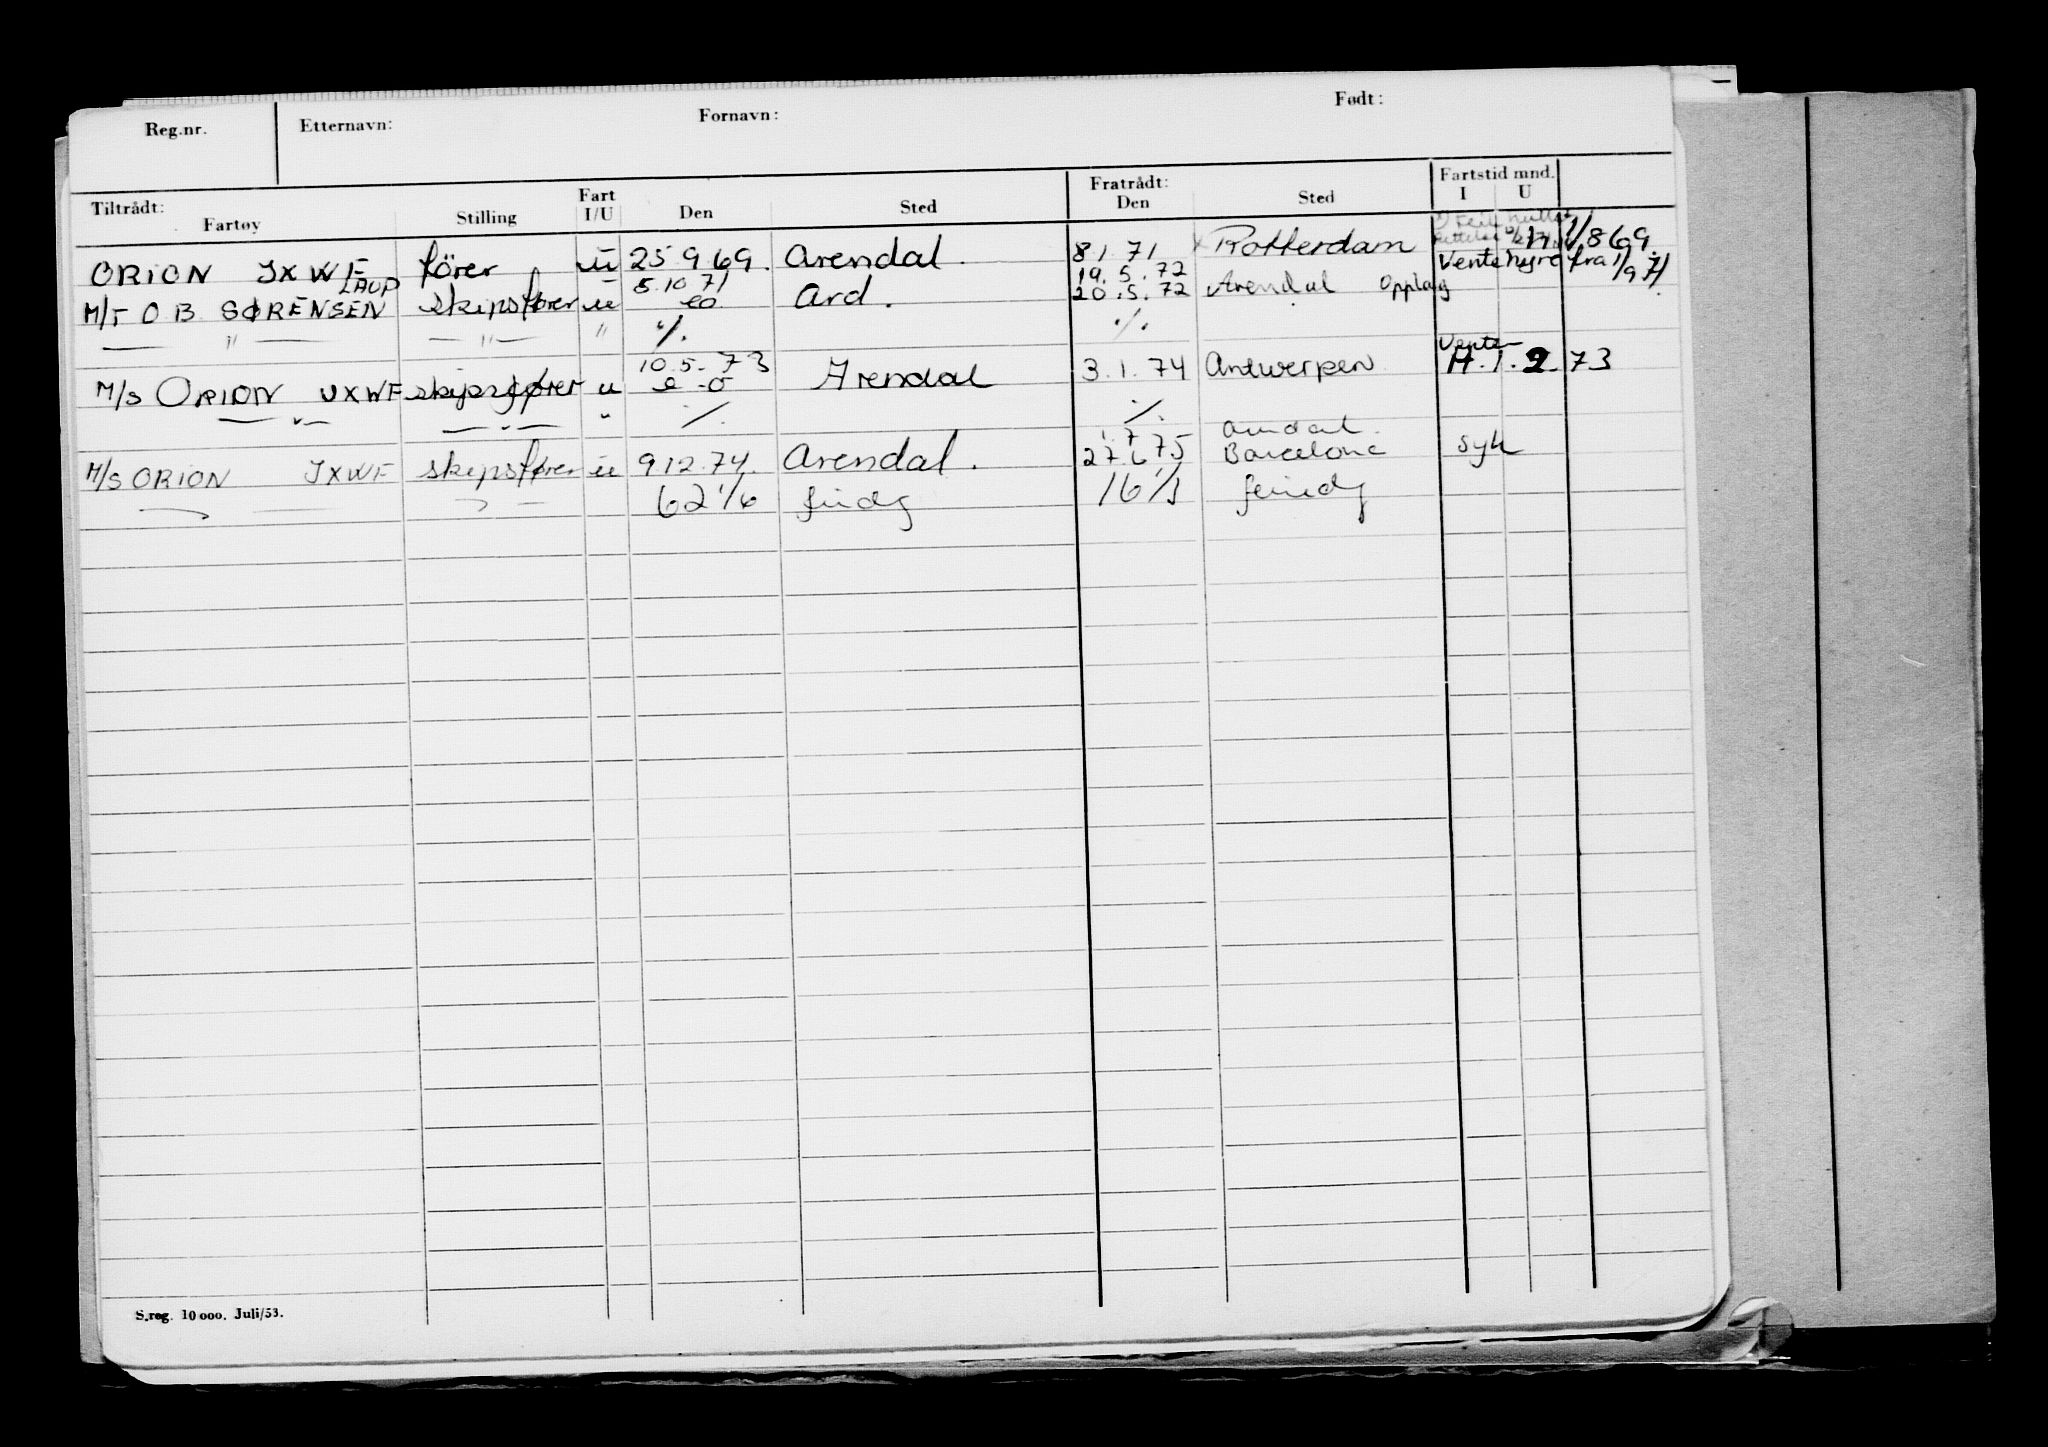 Reg.nr. Etternavn: Fornavn: Født:
Tiltrådt: Fratrådt: Fartstid mnd.
Fartøy Stilling Fart I/U Den Sted Den Sted I U
ORION JXWF förer u 25 9 69. Arendal. 8 1. 71 x Rotterdam 1/8 69.
LAUP 5.10 71 19. 5. 72 Vente hyre fra 1/9 71.
M/T O B SØRENSEN skipsfører u Ard. 20. 5. 72 Arendal Opplag
— " — — " — " ./. ./.
10. 5. 73 Vente
M/S ORION JXWF skipsfører u Arendal 3. 1. 74 Antwerpen H. 1. 2. 73
— " — — " — " ./. ./.
1. 7 Arendal.
M/S ORION JXWF skipsfører u 9 12. 74. Arendal. 27.6 75 Barcelona syk
62 1/6 16 1/1
S.reg. 10 000. Juli/53.